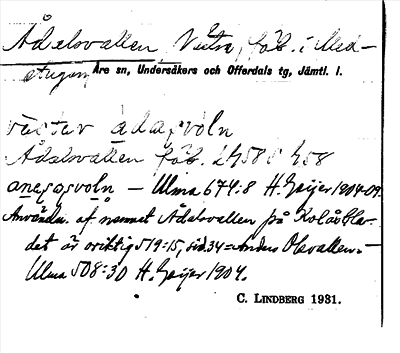 Ådalsvallen, Västra, fäb. i Med-
stugan, Åre sn, Undersåkers och Offerdals tg, Jämtl. l.
väster ådasvoln
Ådalsvallen fäb.
anersvoln – Ulma 674:8 H. Geijer 1904-09.
Användn. af namnet Ådalsvallen på Kolåsbla-
det är oriktig 519:15, sid. 34 = Anders Olsvallen. –
Ulma 508:30 H. Geijer 1904.
C. LINDBERG 1931.